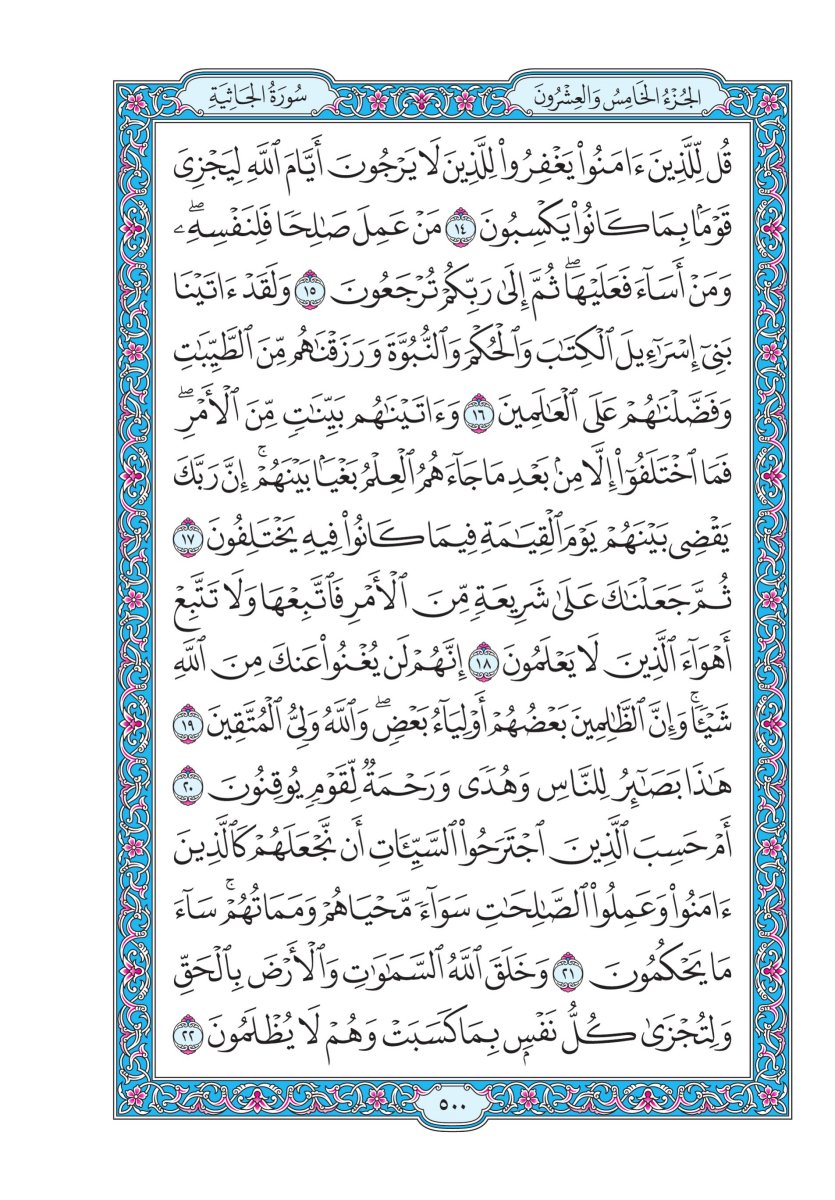 الجُزْءُ الخَامِسُ وَالعِشْرُونَ
سُورَةُ الجَاثِيَةِ
قُل لِّلَّذِينَ ءَامَنُواْ يَغْفِرُواْ لِلَّذِينَ لَا يَرْجُونَ أَيَّامَ ٱللَّهِ لِيَجْزِيَ
قَوْمَۢا بِمَا كَانُواْ يَكْسِبُونَ ١٤ مَنْ عَمِلَ صَٰلِحٗا فَلِنَفْسِهِۦۖ
وَمَنْ أَسَآءَ فَعَلَيْهَاۖ ثُمَّ إِلَىٰ رَبِّكُمْ تُرْجَعُونَ ١٥ وَلَقَدْ ءَاتَيْنَا
بَنِيٓ إِسْرَٰٓءِيلَ ٱلْكِتَٰبَ وَٱلْحُكْمَ وَٱلنُّبُوَّةَ وَرَزَقْنَٰهُم مِّنَ ٱلطَّيِّبَٰتِ
وَفَضَّلْنَٰهُمْ عَلَى ٱلْعَٰلَمِينَ ١٦ وَءَاتَيْنَٰهُم بَيِّنَٰتٖ مِّنَ ٱلْأَمْرِۖ
فَمَا ٱخْتَلَفُوٓاْ إِلَّا مِنۢ بَعْدِ مَا جَآءَهُمُ ٱلْعِلْمُ بَغْيَۢا بَيْنَهُمْۚ إِنَّ رَبَّكَ
يَقْضِي بَيْنَهُمْ يَوْمَ ٱلْقِيَٰمَةِ فِيمَا كَانُواْ فِيهِ يَخْتَلِفُونَ ١٧
ثُمَّ جَعَلْنَٰكَ عَلَىٰ شَرِيعَةٖ مِّنَ ٱلْأَمْرِ فَٱتَّبِعْهَا وَلَا تَتَّبِعْ
أَهْوَآءَ ٱلَّذِينَ لَا يَعْلَمُونَ ١٨ إِنَّهُمْ لَن يُغْنُواْ عَنكَ مِنَ ٱللَّهِ
شَيْـٔٗاۚ وَإِنَّ ٱلظَّٰلِمِينَ بَعْضُهُمْ أَوْلِيَآءُ بَعْضٖۖ وَٱللَّهُ وَلِيُّ ٱلْمُتَّقِينَ ١٩
هَٰذَا بَصَٰٓئِرُ لِلنَّاسِ وَهُدٗى وَرَحْمَةٞ لِّقَوْمٖ يُوقِنُونَ ٢٠
أَمْ حَسِبَ ٱلَّذِينَ ٱجْتَرَحُواْ ٱلسَّيِّـَٔاتِ أَن نَّجْعَلَهُمْ كَٱلَّذِينَ
ءَامَنُواْ وَعَمِلُواْ ٱلصَّٰلِحَٰتِ سَوَآءٗ مَّحْيَاهُمْ وَمَمَاتُهُمْۚ سَآءَ
مَا يَحْكُمُونَ ٢١ وَخَلَقَ ٱللَّهُ ٱلسَّمَٰوَٰتِ وَٱلْأَرْضَ بِٱلْحَقِّ
وَلِتُجْزَىٰ كُلُّ نَفْسِۭ بِمَا كَسَبَتْ وَهُمْ لَا يُظْلَمُونَ ٢٢
٥٠٠